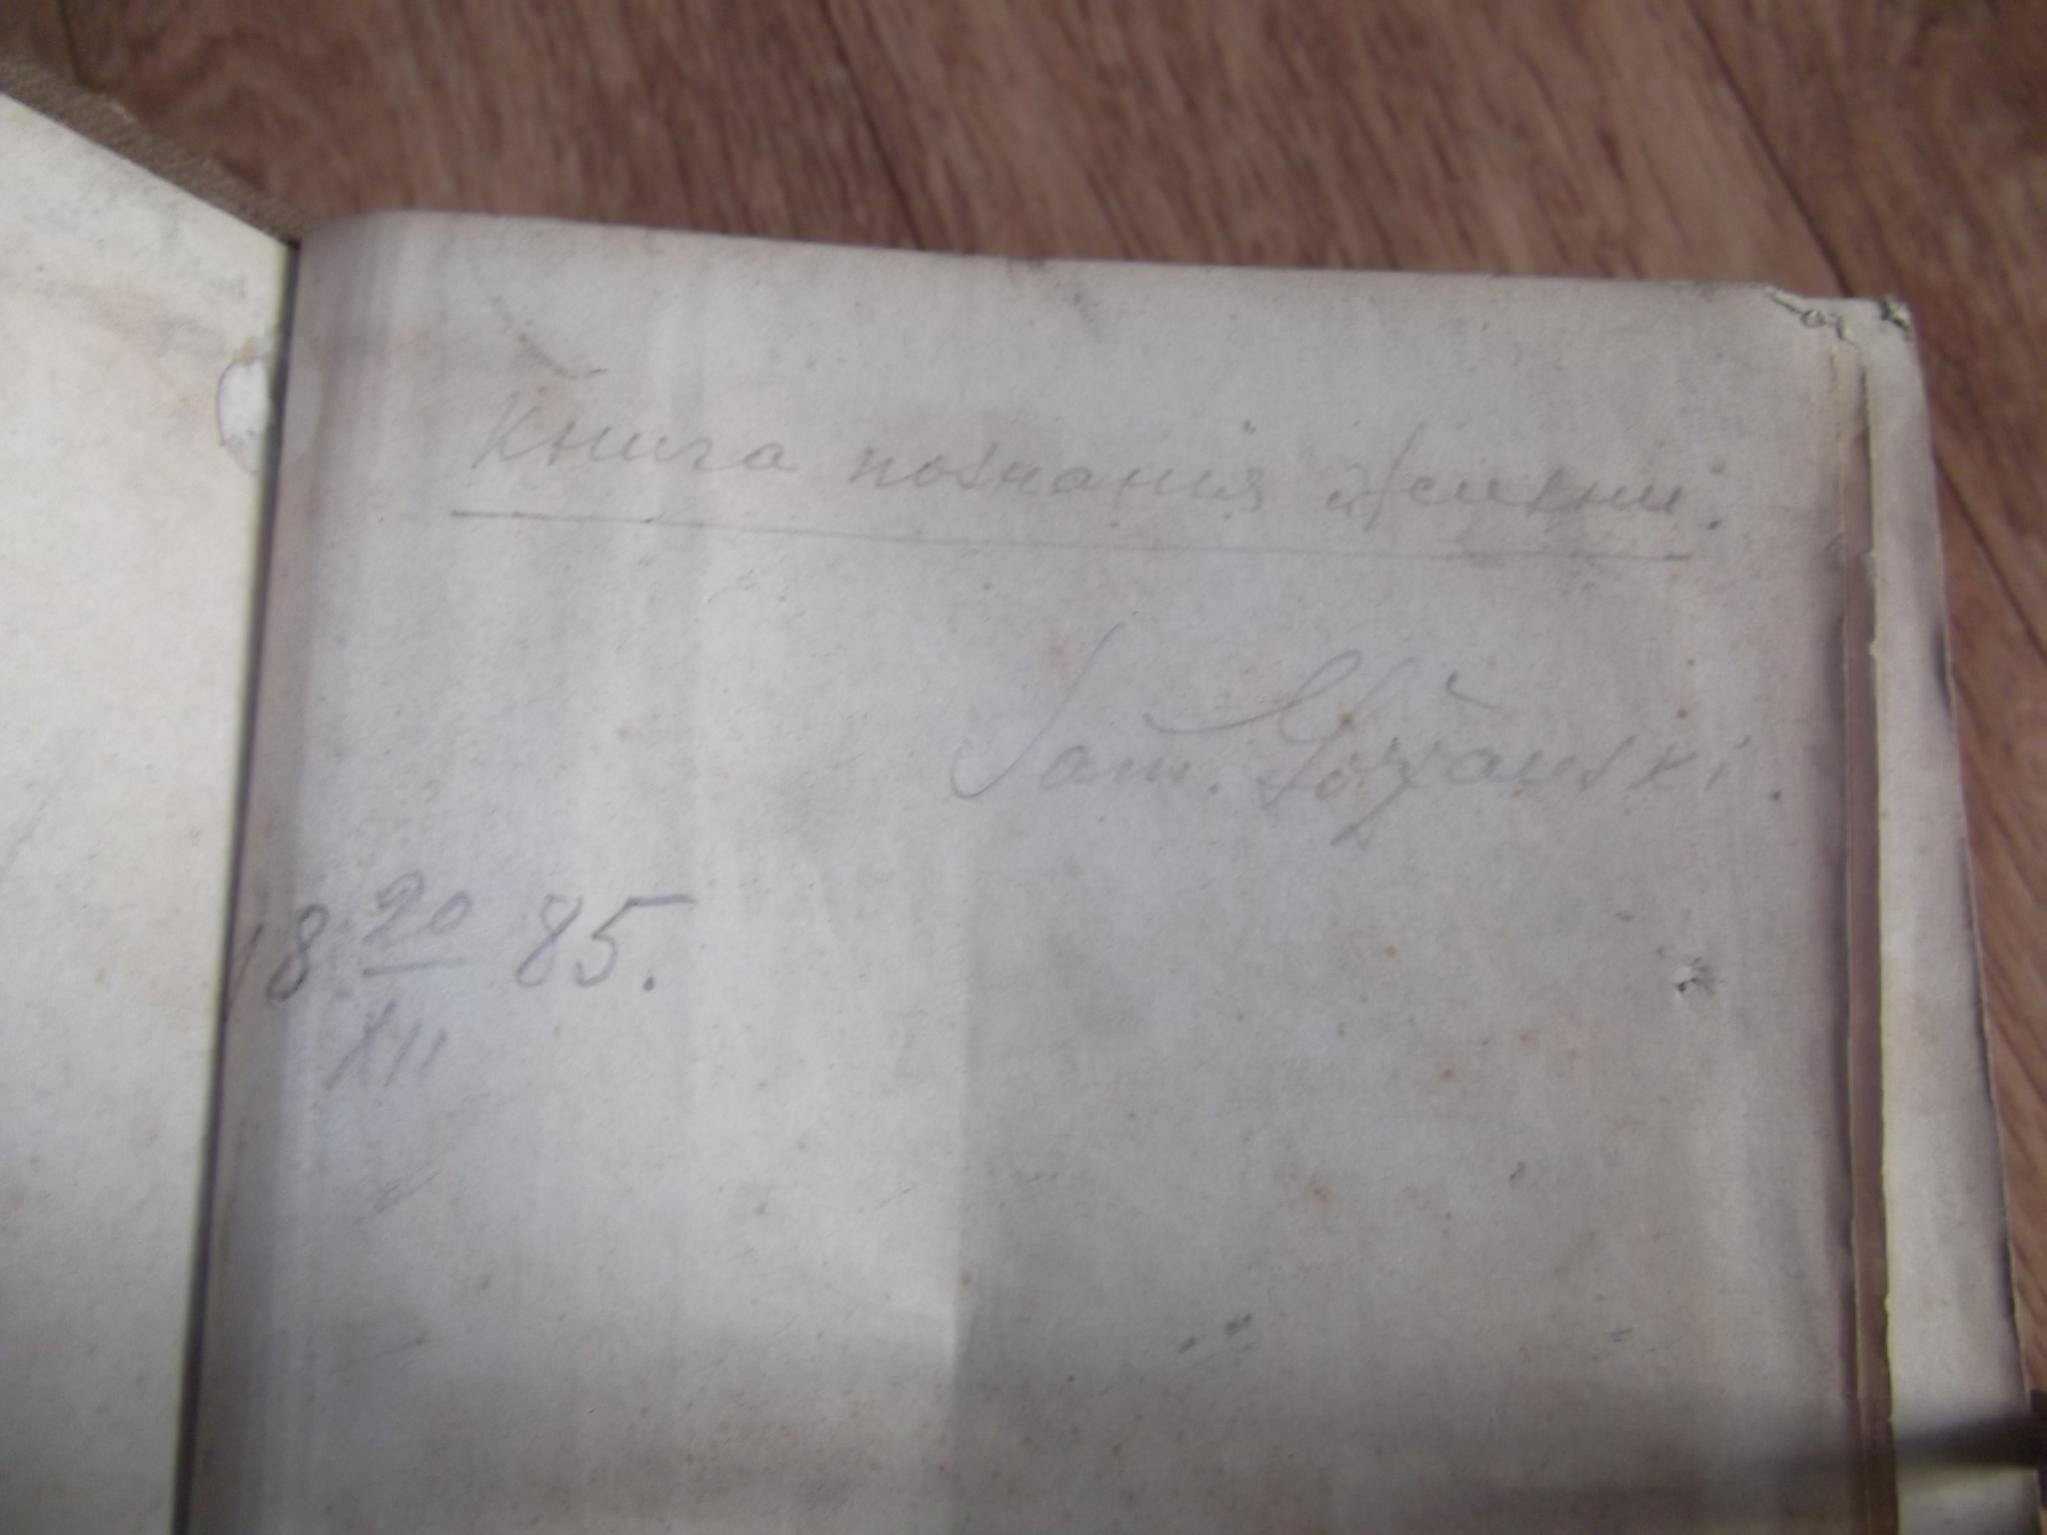 Книга познанія жизни.
Sam.
18 20/XII 85.